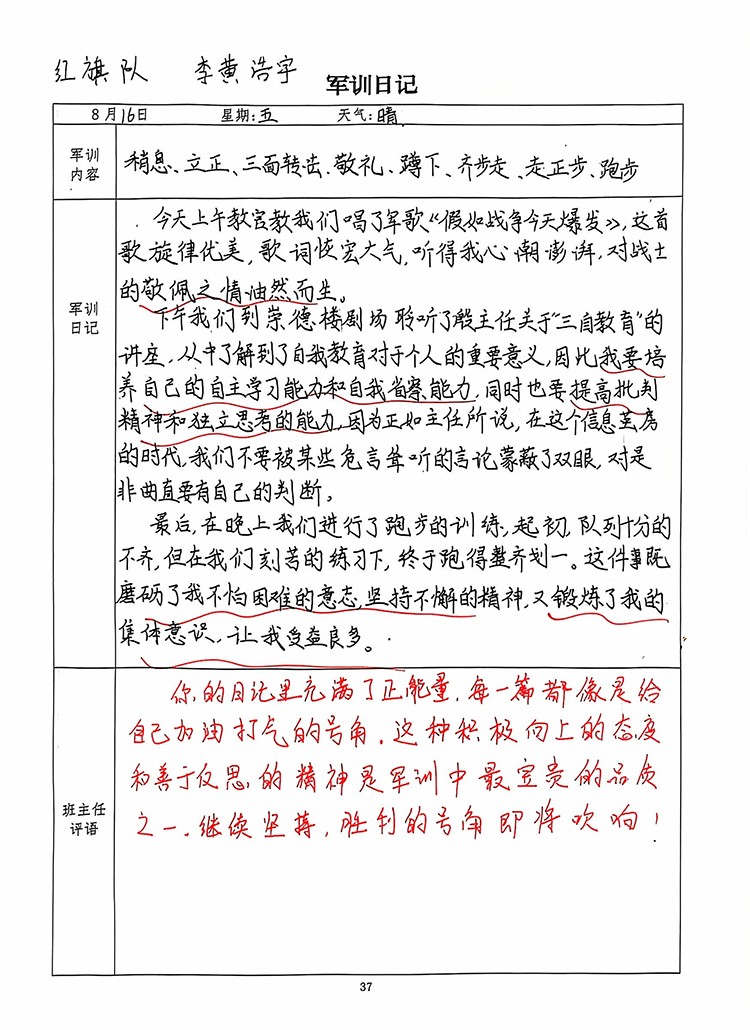 红旗队 李黄浩宇
军训日记
8月16日 星期:五 天气:晴
军训
内容
稍息、立正、三面转击、敬礼、蹲下、齐步走、走正步、跑步
军训
日记
今天上午教官教我们唱了军歌《假如战争今天爆发》,这首
歌旋律优美,歌词恢宏大气,听得我心潮澎湃,对战士
的敬佩之情油然而生。
下午我们到崇德楼剧场聆听了殷主任关于“三自教育”的
讲座,从中了解到了自我教育对于个人的重要意义,因此我要培
养自己的自主学习能力和自我省察能力,同时也要提高批判
精神和独立思考的能力,因为正如主任所说,在这个信息茧房
的时代,我们不要被某些危言耸听的言论蒙蔽了双眼,对是
非曲直要有自己的判断。
最后,在晚上我们进行了跑步的训练,起初,队列十分的
不齐,但在我们刻苦的练习下,终于跑得整齐划一。这件事既
磨砺了我不怕困难的意志,坚持不懈的精神,又锻炼了我的
集体意识,让我受益良多。
班主任
评语
你的日记里充满了正能量,每一篇都像是给
自己加油打气的号角,这种积极向上的态度
和善于反思的精神是军训中最宝贵的品质
之一.继续坚持,胜利的号角即将吹响!
37